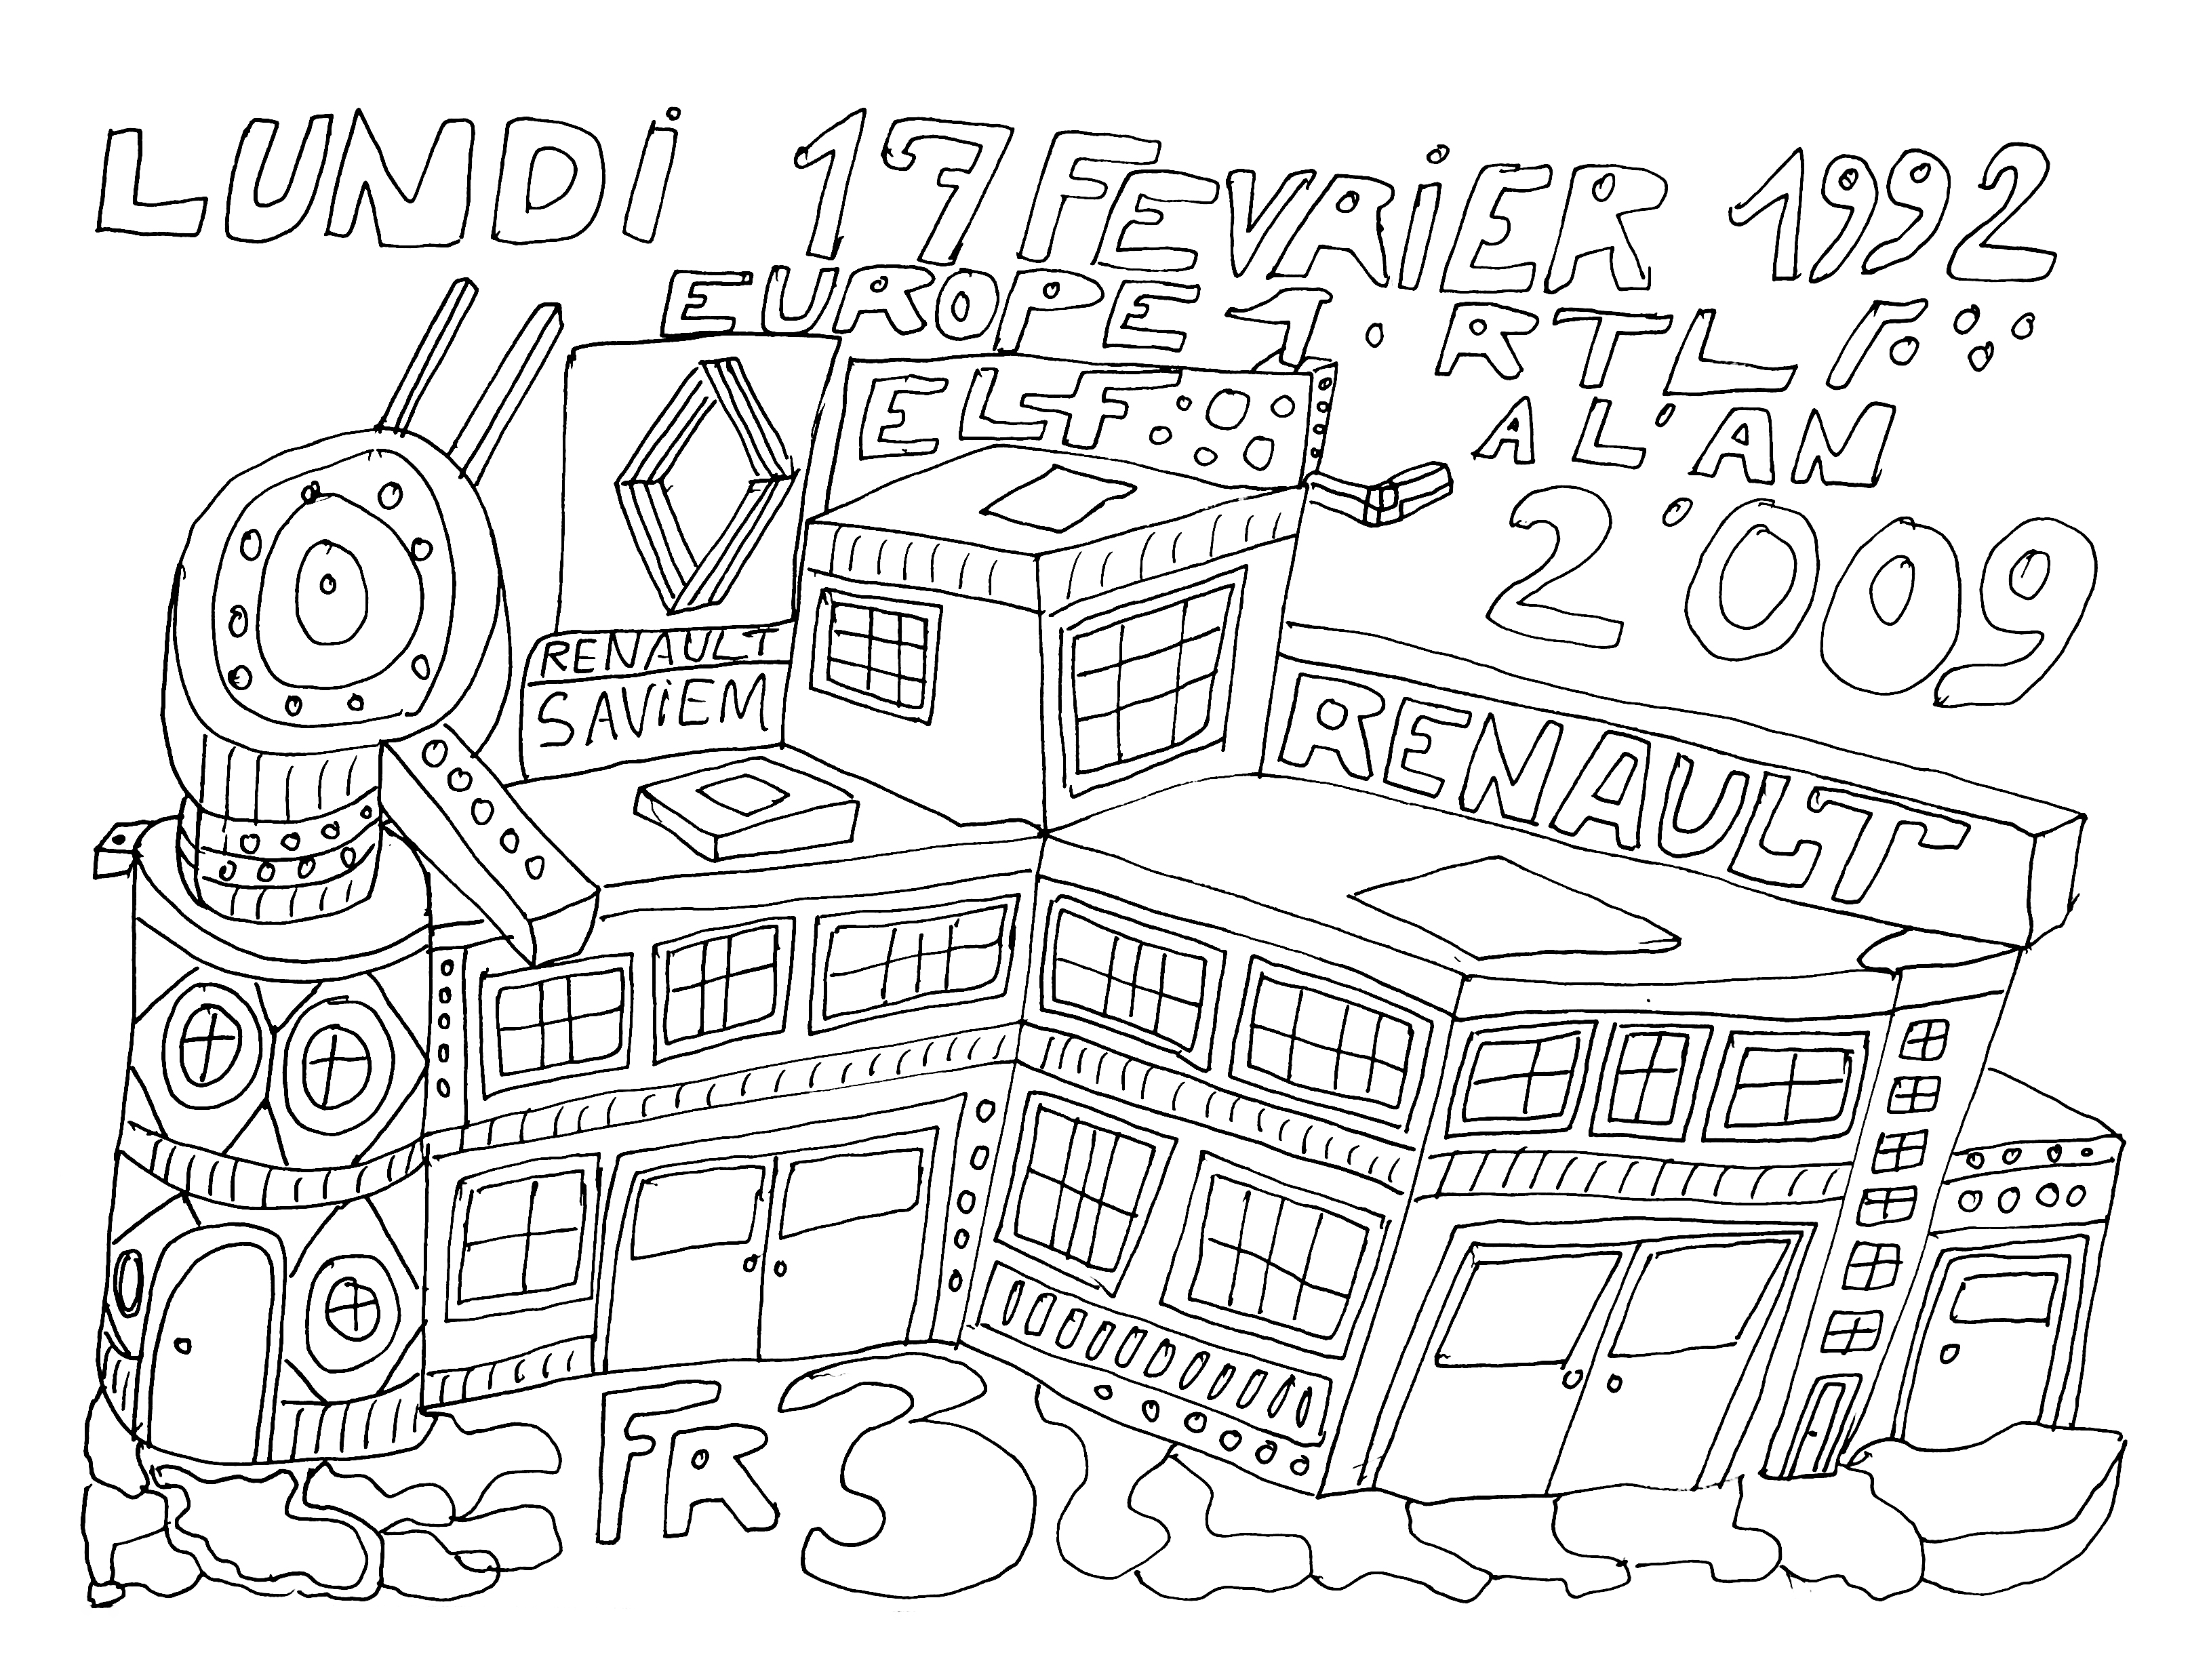 LUNDi 17 FEVRiER 1992
EUROPE 1. RTL F
ELF
A L'AN
2'009
RENAULT
SAViEM
RENAULT
FR3